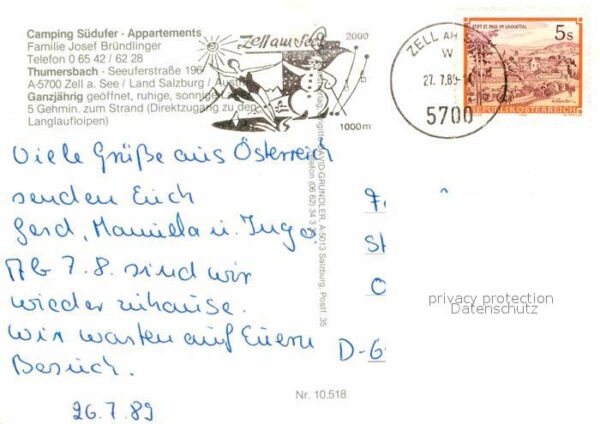 Camping Südufer - Appartements
Familie Josef Bründlinger
Telefon 0 65 42 / 62 28
Thumersbach · Seeuferstraße 196
A-5700 Zell a. See / Land Salzburg /
Ganzjährig geöffnet, ruhige, sonnige
5 Gehmin. zum Strand (Direktzugang zu den
Langlaufloipen)
Zell am See
2000
1000m
ZELL AM
W
27. 7.89
5700
STIFT ST. PAUL IM LAVANTTAL
5s
REPUBLIK ÖSTERREICH
Viele Grüße aus Österreich
senden Euch
Gerd, Manuela u. Ingo
Ab 7.8. sind wir
wieder zuhause.
Wir warten auf Euern
Besuch.
26.7.89
DAVID-GRÜNDLER, A-5013 Salzburg, Postf. 35
Telefon (06 62) 34 3
D-6
privacy protection
Datenschutz
Nr. 10.518